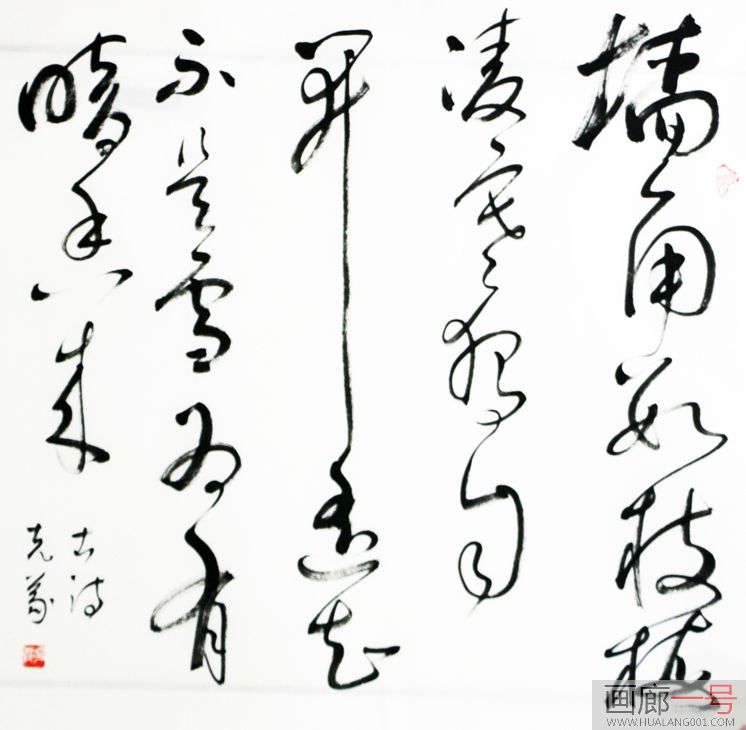 墙角数枝梅
凌寒独自
开遥知
不是雪为有
暗香来
古诗
克
画廊一号
WWW.HUALANG001.COM